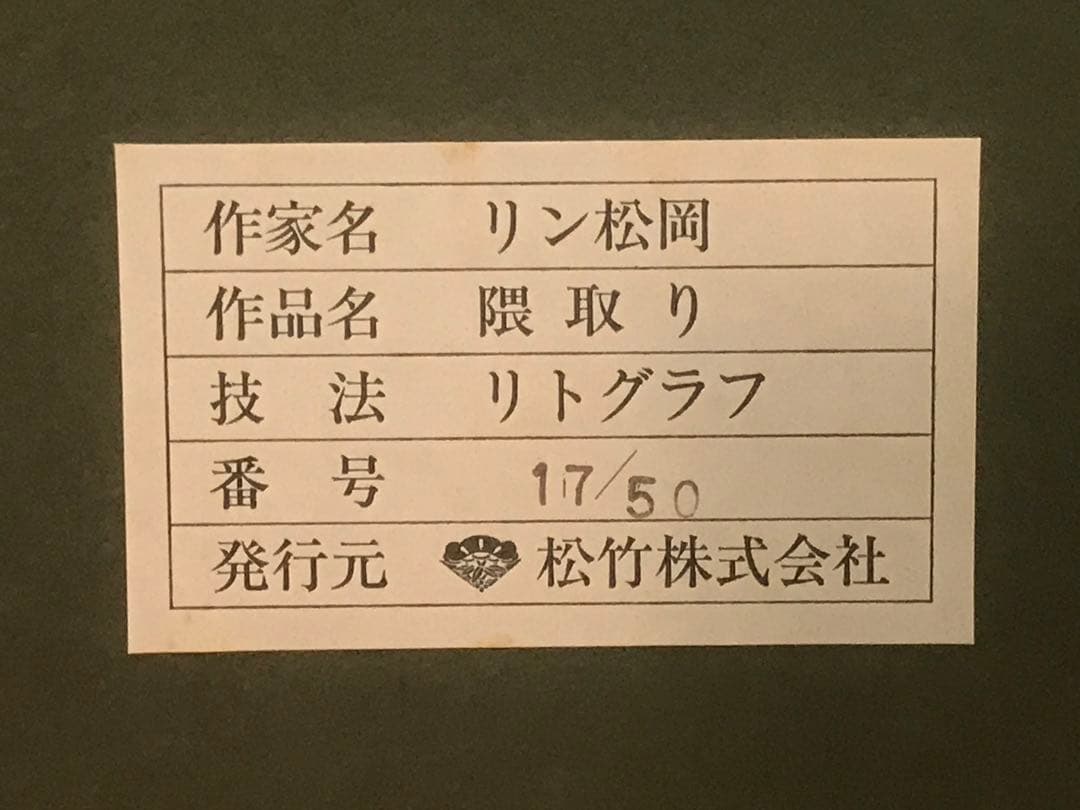 作家名 リン松岡
作品名 隈取り
技法 リトグラフ
番号 17/50
発行元 松竹株式会社